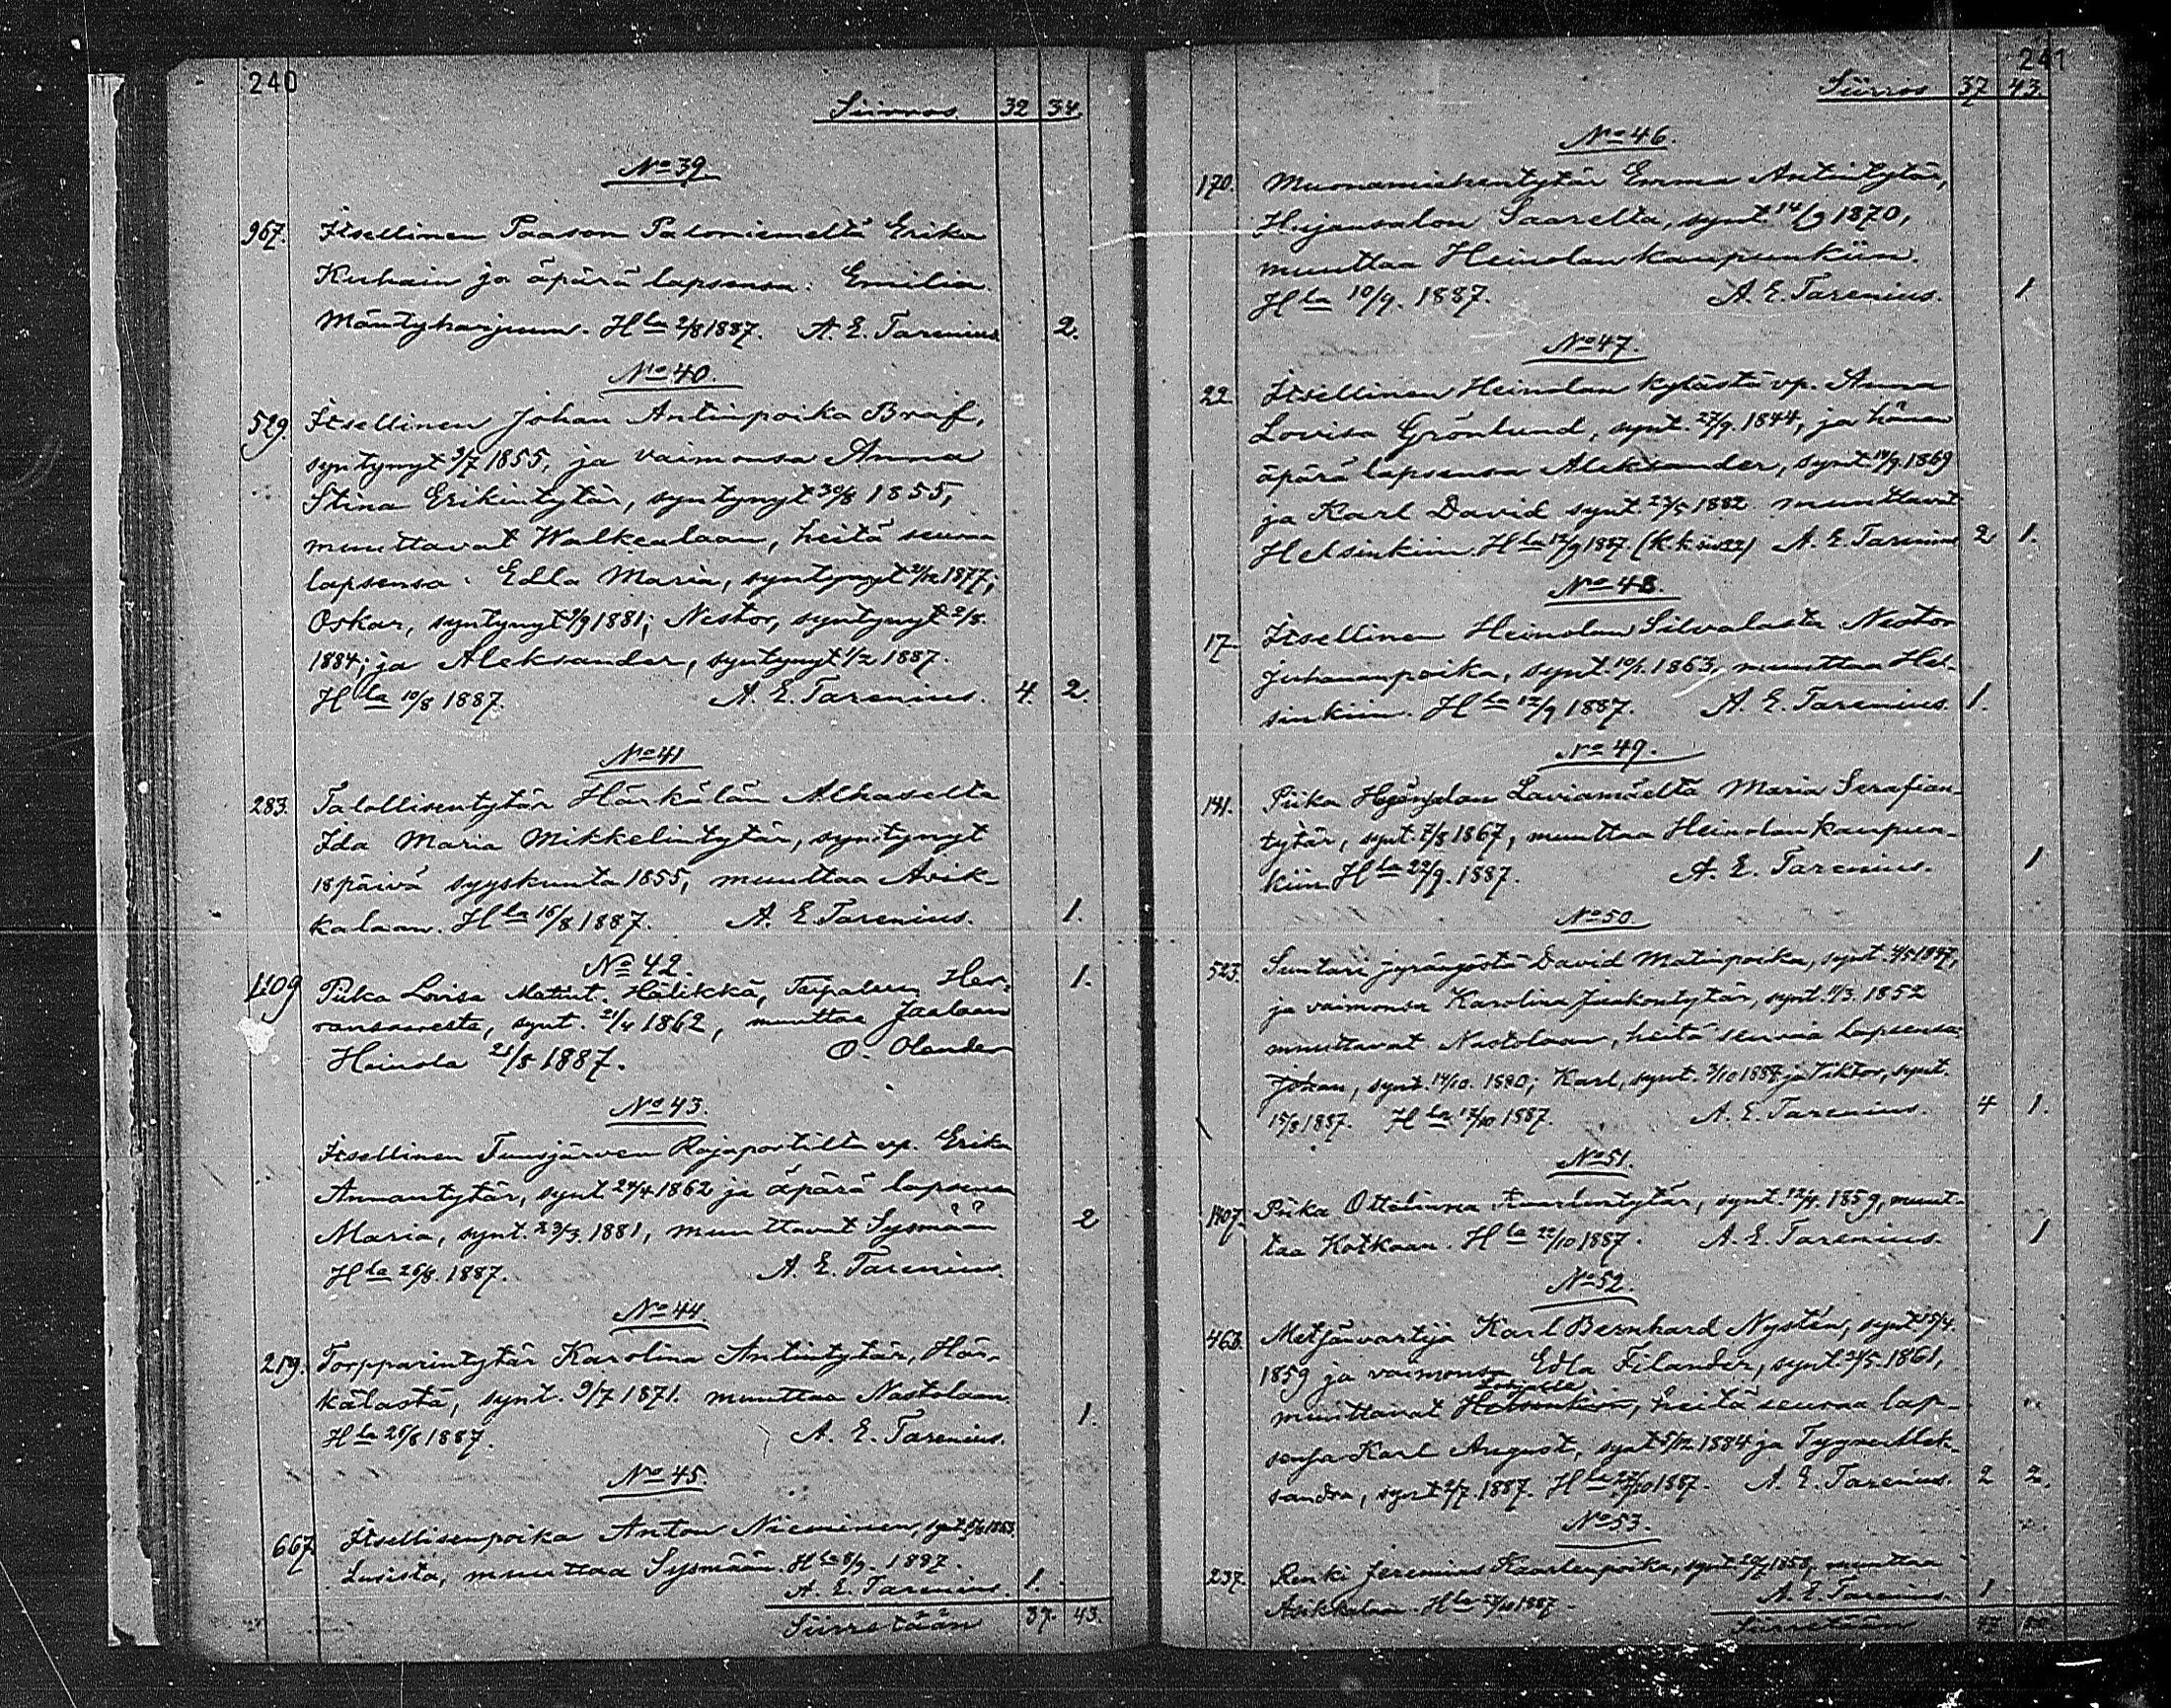 240
Siirros 32 34.
No 39
967. Itsellinen Paason Paloniemeltä Erika
Kuhain ja äpärä lapsensa: Emilia
Mäntyharjuun. Hla 2/8 1887. A. E. Tarenius. 2.
No 40.
529. Itsellinen Johan Antinpoika Braf,
syntynyt 3/7 1855, ja vaimonsa Anna
Stina Erikintytär, syntynyt 30/8 1855,
muuttavat Walkealaan, heitä seuraa
lapsensa: Edla Maria, syntynyt 21/12 1877;
Oskar, syntynyt 9/9 1881; Nestor, syntynyt 2/8
1884; ja Aleksander, syntynyt 1/2 1887.
Hla 10/8 1887. A. E. Tarenius. 4. 2.
No 41
283. Talollisentytär Härkälän Alhaselta
Ida Maria Mikkelintytär, syntynyt
18 päivä syyskuuta 1855, muuttaa Asik-
kalaan. Hla 16/8 1887. A. E. Tarenius. 1.
No 42.
1109 Piika Lovisa Matint. Hälikkä, Taipaleen Her-
ransaaresta, synt. 21/4 1862, muuttaa Jaalaan 1.
Heinola 21/8 1887. O. Olander
No 43.
Itsellinen Tuusjärven Rajaportilta vp. Erika
Annantytär, synt 24/4 1862 ja äpärä lapsensa
Maria, synt. 23/3 1881, muuttavat Sysmään 2
Hla 26/8. 1887. A. E. Tarenius.
No 44
219. Torpparintytär Karolina Antintytär, Här-
kälästä, synt. 9/7 1871. muuttaa Nastolaan.
Hla 26/8 1887. A. E. Tarenius. 1.
No 45.
667. Itsellisenpoika Anton Nieminen, synt.
Lusista, muuttaa Sysmään. Hla 8/9. 1887.
A. E. Tarenius. 1.
Siirretään 37. 43.
241
Siirros 37 43.
No 46.
170. Muonamiehentytär Emma Antintytär,
Hujansalon Saarelta, synt 14/9 1870,
muuttaa Heinolan kaupunkiin.
Hla 10/9. 1887. A. E. Tarenius. 1
No 47.
22. Itsellinen Heinolan kylästä vp. Anna
Lovisa Grönlund, synt. 27/9. 1844, ja hänen
äpärä lapsensa Aleksander, synt. 14/9. 1869
ja Karl David synt. 23/5 1882 muuttavat
Helsinkiin. Hla 12/9 1887 A. E. Tarenius 2 1.
No 48.
17. Itsellinen Heinolan Silvolasta Nestor
Juhananpoika, synt. 10/1. 1863, muuttaa Hel-
sinkiin. Hla 12/9 1887. A. E. Tarenius. 1.
No 49.
141. Piika Hujansalon Laviamäeltä Maria Serafian-
tytär, synt. 7/8 1867, muuttaa Heinolan kaupun-
kiin. Hla 22/9. 1887. A. E. Tarenius. 1
No 50.
523. Suutari jyrängöstä David Matinpoika, synt. 4/5 1847,
ja vaimonsa Karolina Jaakontytär, synt. 11/3. 1852
muuttavat Nastolaan, heitä seuraa lapsensa:
Johan, synt. 14/10. 1880; Karl, synt. 3/10 1884 ja Viktor, synt.
15/8 1887. Hla 13/10 1887. A. E. Tarenius. 4 1.
No 51.
1407. Piika Ottoliinna Kaarlentytär, synt. 12/4. 1859, muut-
taa Kotkaan. Hla 22/10 1887. A. E. Tarenius. 1
No 52.
463. Metsänvartija Karl Bernhard Nystén, synt. 15/4.
1859 ja vaimonsa Edla Filander, synt. 3/5. 1861,
muuttavat Helsinkiin, heitä seuraa lap-
sensa Karl August, synt 5/12 1884 ja Tyyne Alek-
sandra, synt 2/7. 1887. Hla 27/10 1887. A. E. Tarenius. 2 2.
No 53.
237. Renki Jeremias Kaarlenpoika, synt. 20/7 1858, muuttaa
Asikkalaan. Hla 27/10 1887. A. E. Tarenius. 1
Siirretään 47